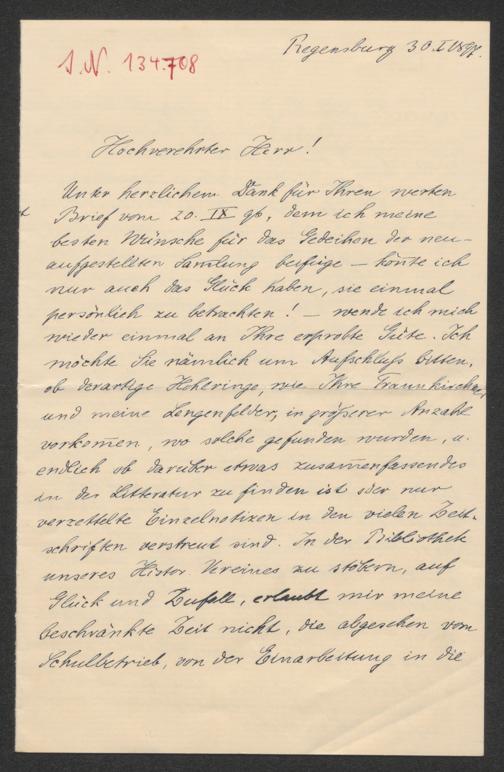 Regensburg 30.I.1897.
J.N. 134.708
Hochverehrter Herr!
Unter herzlichem Dank für Ihren werten
Brief vom 20. IX 96, dem ich meine
besten Wünsche für das Gedeihen der neu-
aufgestellten Samlung beifüge – könte ich
nur auch das Glück haben, sie einmal
persönlich zu betrachten! – wende ich mich
wieder einmal an Ihre erprobte Güte. Ich
möchte Sie nämlich um Aufschluß bitten,
ob derartige Hohlringe, wie Ihre Traunkirchner
und meine Lengenfelder, in größerer Anzahl
vorkom̄en, wo solche gefunden wurden, u.
endlich ob darüber etwas zusam̄enfassendes
in der Litteratur zu finden ist oder nur
verzettelte Einzelnotizen in den vielen Zeit-
schriften verstreut sind. In der Bibliothek
unseres Histor Vereines zu stöbern, auf
Glück und Zufall, erlaubt mir meine
beschränkte Zeit nicht, die abgesehen vom
Schulbetrieb, von der Einarbeitung in die